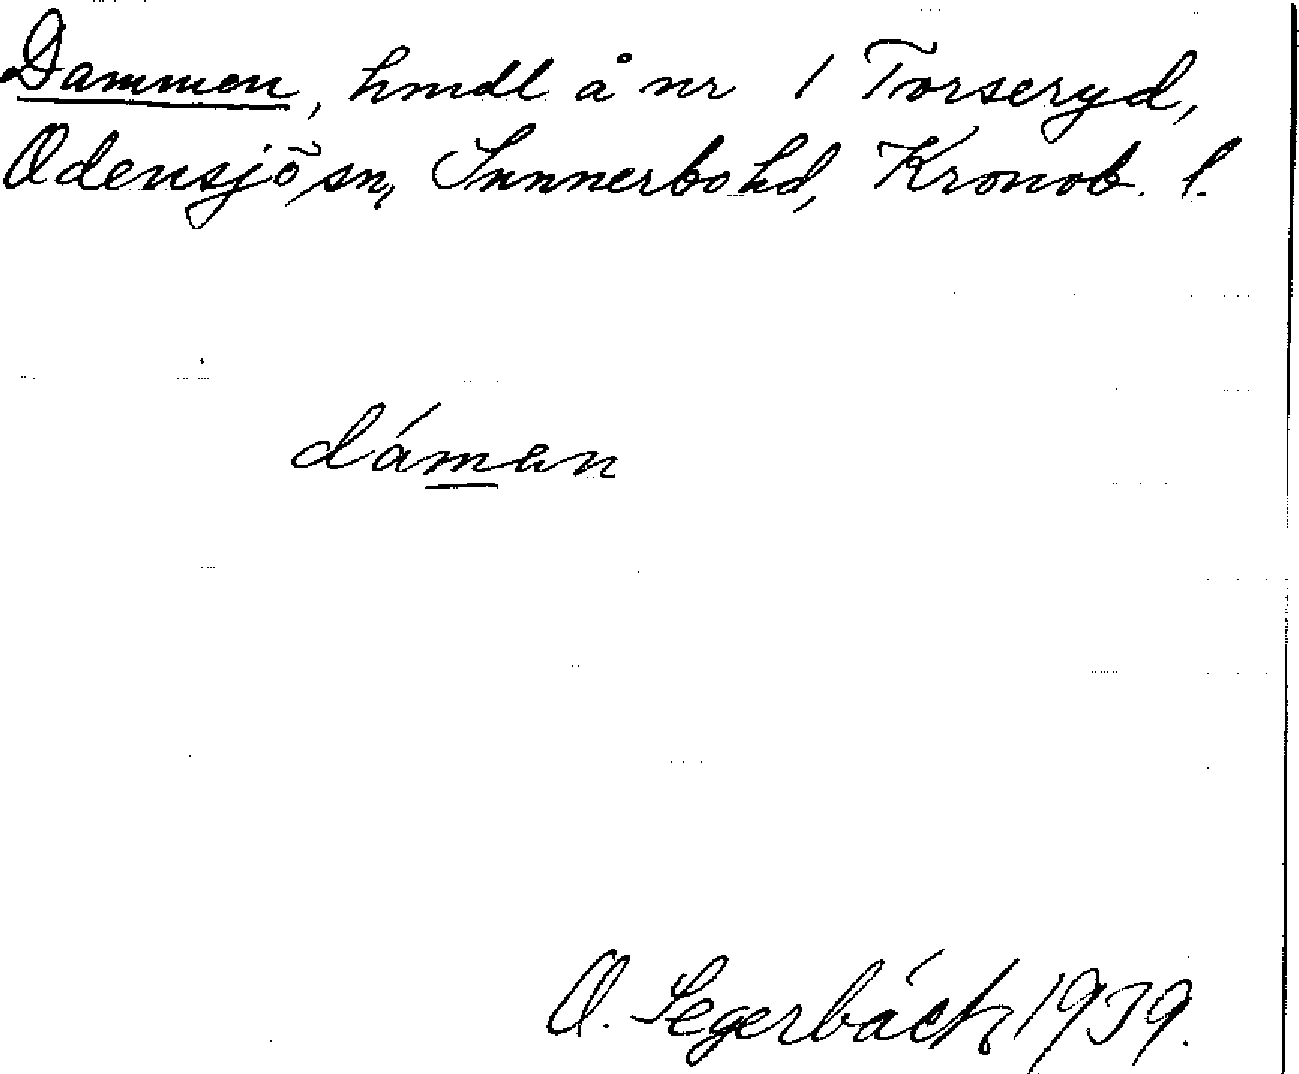 Dammen, hmdl å nr 1 Torseryd,
Odensjö sn, Sunnerbo hd, Kronob. l.
dáman
O. Segerbäck 1939.